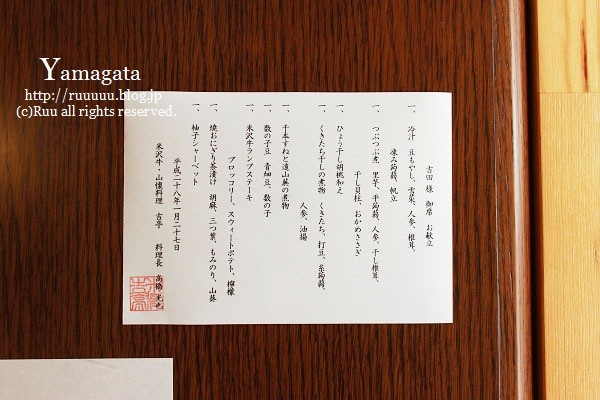 Yamagata
http://ruuuuu.blog.jp
(c)Ruu all rights reserved.
吉田 様 御席 お献立
一、 冷汁 豆もやし、雪菜、人参、椎茸、
凍み蒟蒻、帆立
一、 つぶつぶ煮 里芋、平蒟蒻、人参、干し椎茸、
干し貝柱、おかめささぎ
一、 ひょう干し胡桃和え
一、 くきたち干しの煮物 くきたち、打豆、糸蒟蒻、
人参、油揚
一、 干本すねと遠山蕪の煮物
一、 数の子豆 青畑豆、数の子
一、 米沢牛ランプステーキ
ブロッコリー、スウィートポテト、檸檬
一、 焼おにぎり茶漬け 胡麻、三つ葉、もみのり、山葵
一、 柚子シャーベット
平成二十八年一月二十七日
米沢牛・山懐料理 吉亭 料理長 高橋 光也